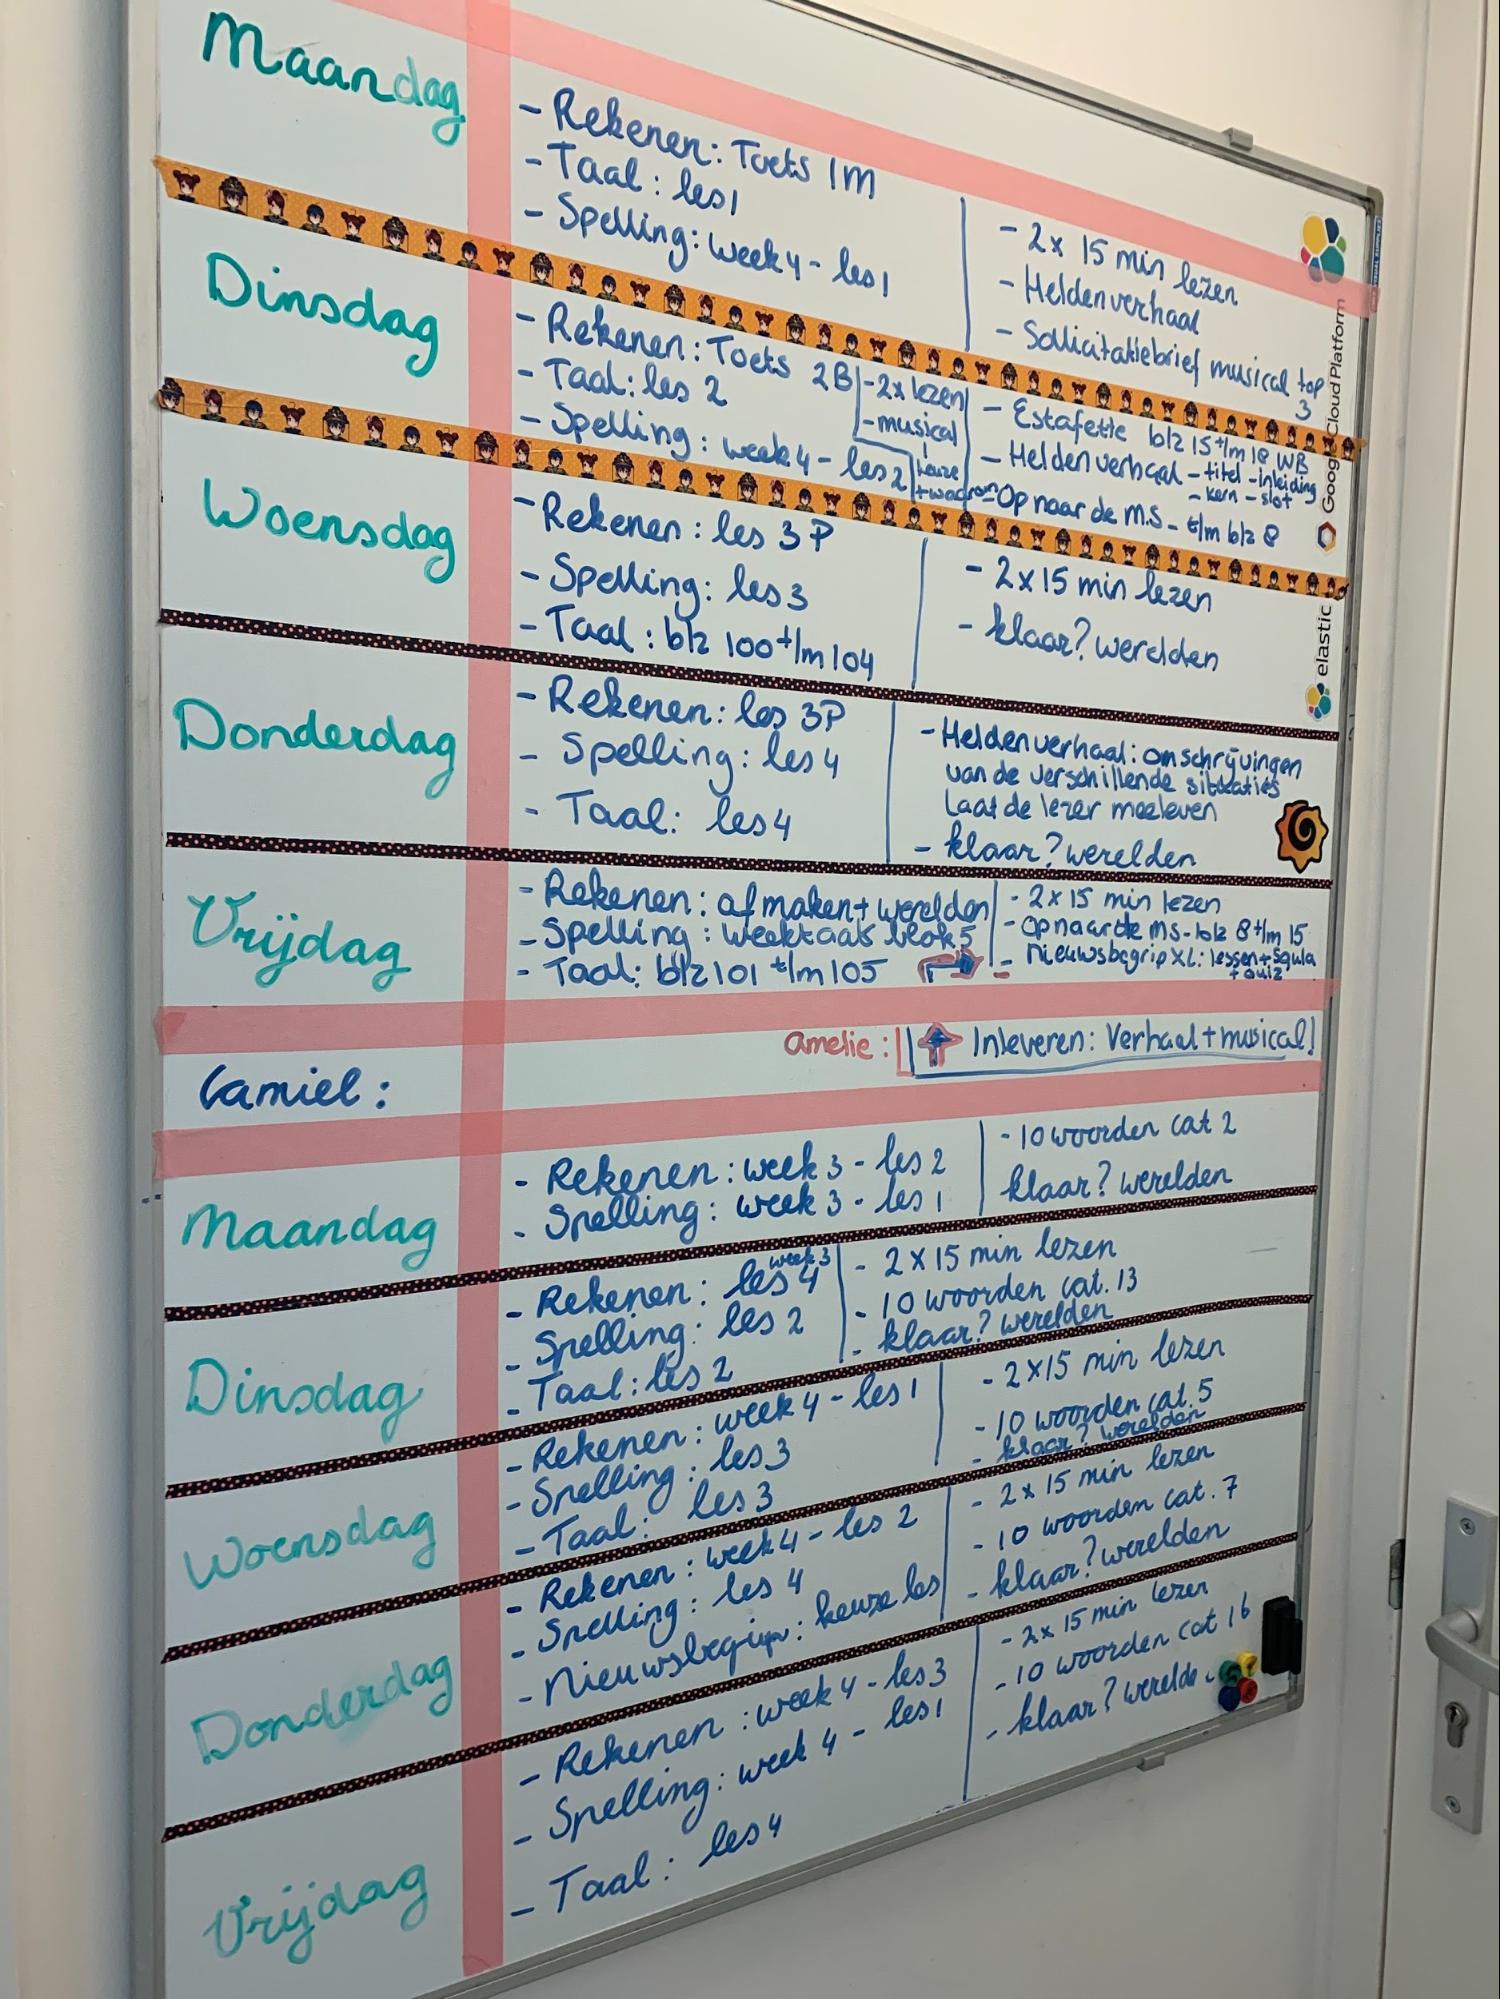 Maandag
- Rekenen: Toets 1M
- Taal: les 1
- Spelling: week 4 - les 1
- 2x 15 min lezen
- Heldenverhaal
- Sollicitatiebrief musical top
3
Dinsdag
- Rekenen: Toets 2B
- Taal: les 2
- Spelling: week 4 - les 2
- 2x lezen
- musical
keuze
- Estafette blz 15 t/m 18 WB
- Heldenverhaal - titel - inleiding
- kern - slot
- Op naar de M.S - t/m blz 8
Woensdag
- Rekenen: les 3P
- Spelling: les 3
- Taal: blz 100 t/m 104
- 2x15 min lezen
- klaar? werelden
Donderdag
- Rekenen: les 3P
- Spelling: les 4
- Taal: les 4
- Heldenverhaal: omschrijvingen
van de verschillende situaties
Laat de lezer meeleven
- klaar? werelden
Vrijdag
- Rekenen: afmaken + werelden
- Spelling: weektaak blok 5
- Taal: blz 101 t/m 105
- 2x15 min lezen
- Op naar de MS - blz 8 t/m 15
- Nieuwsbegrip XL: lessen + Squla
+ quiz
Amelie:
Inleveren: Verhaal + musical!
Camiel:
Maandag
- Rekenen: week 3 - les 2
- Spelling: week 3 - les 1
- 10 woorden cat 2
klaar? werelden
Dinsdag
week 3
- Rekenen: les 4
- Spelling: les 2
- Taal: les 2
- 2x15 min lezen
- 10 woorden cat. 13
- klaar? werelden
Woensdag
- Rekenen: week 4 - les 1
- Spelling: les 3
- Taal: les 3
- 2x15 min lezen
- 10 woorden cat. 5
- klaar? werelden
Donderdag
- Rekenen: week 4 - les 2
- Spelling: les 4
- Nieuwsbegrip: keuze les
- 2x15 min lezen
- 10 woorden cat. 7
- klaar? werelden
Vrijdag
- Rekenen: week 4 - les 3
- Spelling: week 4 - les 1
- Taal: les 4
- 2x 15 min lezen
- 10 woorden cat 16
- klaar? werelde
Google Cloud Platform
elastic